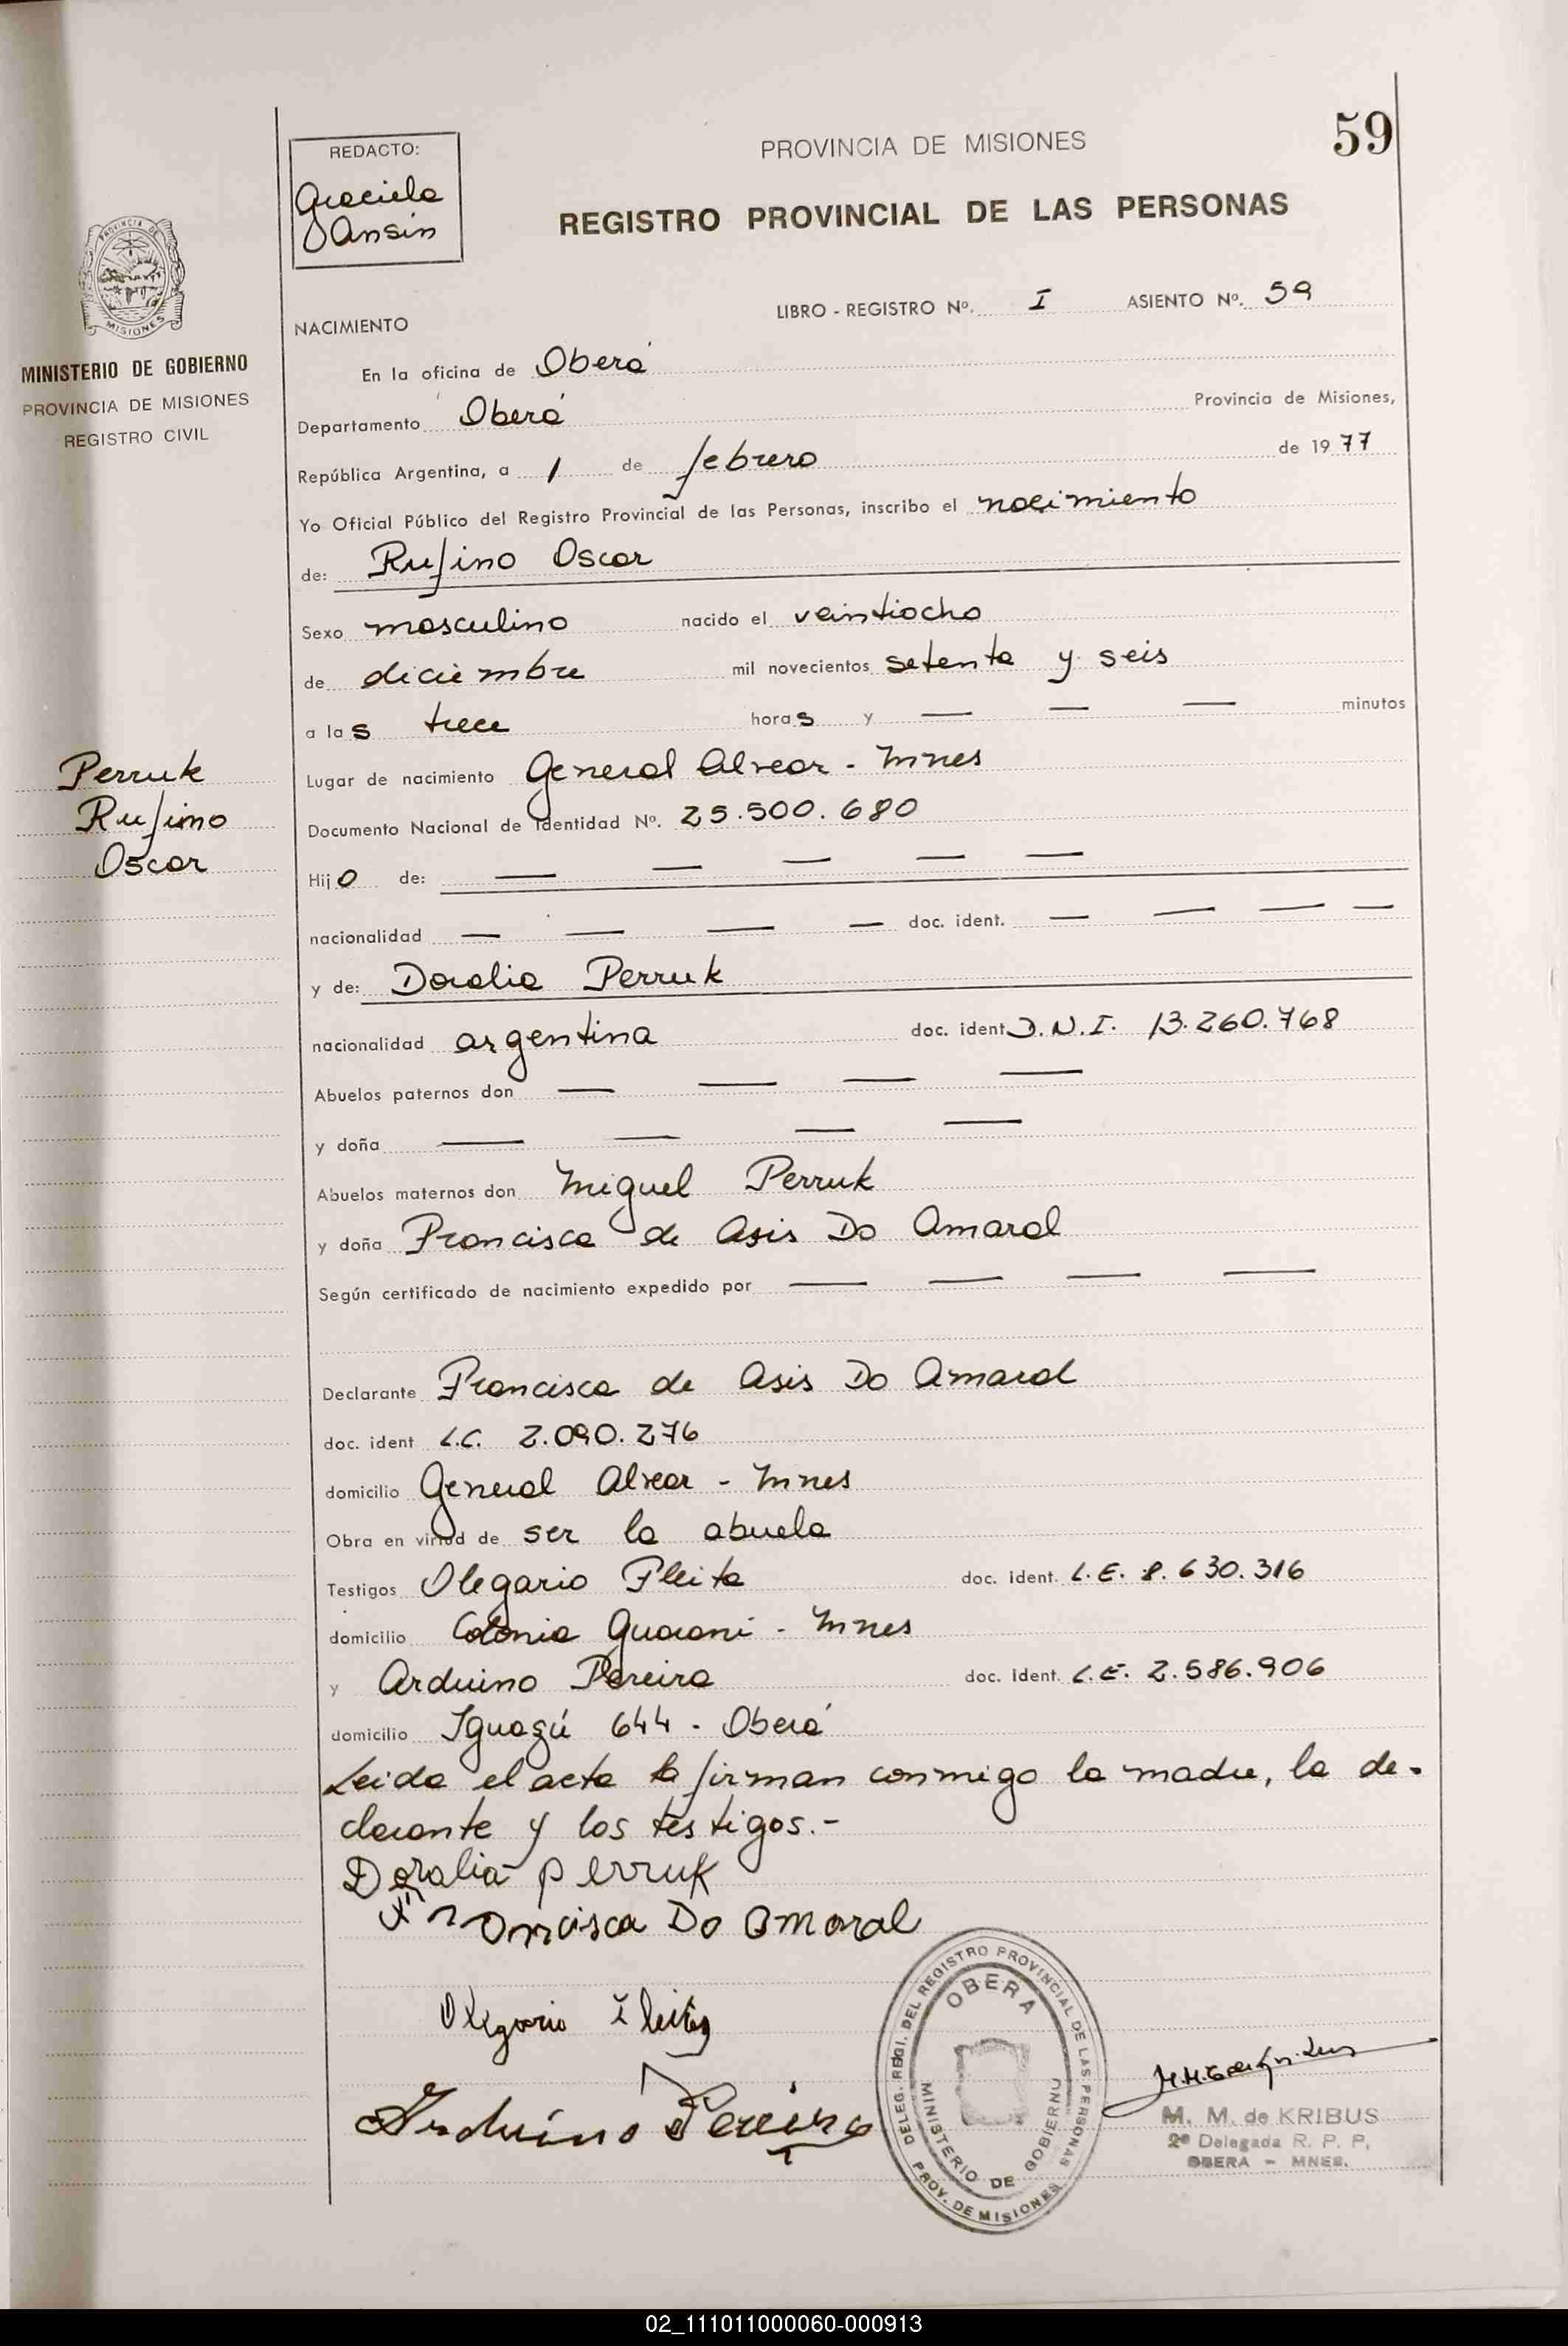 59
REDACTO:
Graciela
Jansin
PROVINCIA DE MISIONES
REGISTRO PROVINCIAL DE LAS PERSONAS
PROVINCIA DE
MISIONES
MINISTERIO DE GOBIERNO
PROVINCIA DE MISIONES
REGISTRO CIVIL
LIBRO - REGISTRO Nº. I ASIENTO Nº. 59
NACIMIENTO
En la oficina de Oberá
Departamento Oberá Provincia de Misiones,
República Argentina, a 1 de febrero de 1977
Yo Oficial Público del Registro Provincial de las Personas, inscribo el nacimiento
de: Rufino Oscar
Sexo masculino nacido el veintiocho
de diciembre mil novecientos setenta y seis
a las trece horas y — — — minutos
Perruk
Rufino
Oscar
Lugar de nacimiento General Alvear - Mnes
Documento Nacional de Identidad Nº. 25.500.680
Hijo de: — — — — —
nacionalidad — — — — doc. ident. — — — —
y de: Doralia Perruk
nacionalidad argentina doc. ident D.N.I. 13.260.768
Abuelos paternos don — — — —
y doña — — — —
Abuelos maternos don Miguel Perruk
y doña Francisca de Asis Do Amaral
Según certificado de nacimiento expedido por — — — —
Declarante Francisca de Asis Do Amaral
doc. ident L.C. 2.090.276
domicilio General Alvear - Mnes
Obra en virtud de ser la abuela
Testigos Olegario Fleita doc. ident. L.E. 8.630.316
domicilio Colonia Guarani - Mnes
y Arduino Pereira doc. ident. L.E. 2.586.906
domicilio Iguazú 644 - Oberá
Leida el acta la firman conmigo la madre, la de-
clarante y los testigos.-
Doralia Perruk
Francisca Do Amaral
Olegario Fleita
Arduino Pereira
DELEG. REGI. DEL REGISTRO PROVINCIAL DE LAS PERSONAS
OBERA
MINISTERIO DE GOBIERNO
PROV. DE MISIONES
M. M. de KRIBUS
2ª Delegada R. P. P.
OBERA - MNES.
02_111011000060-000913